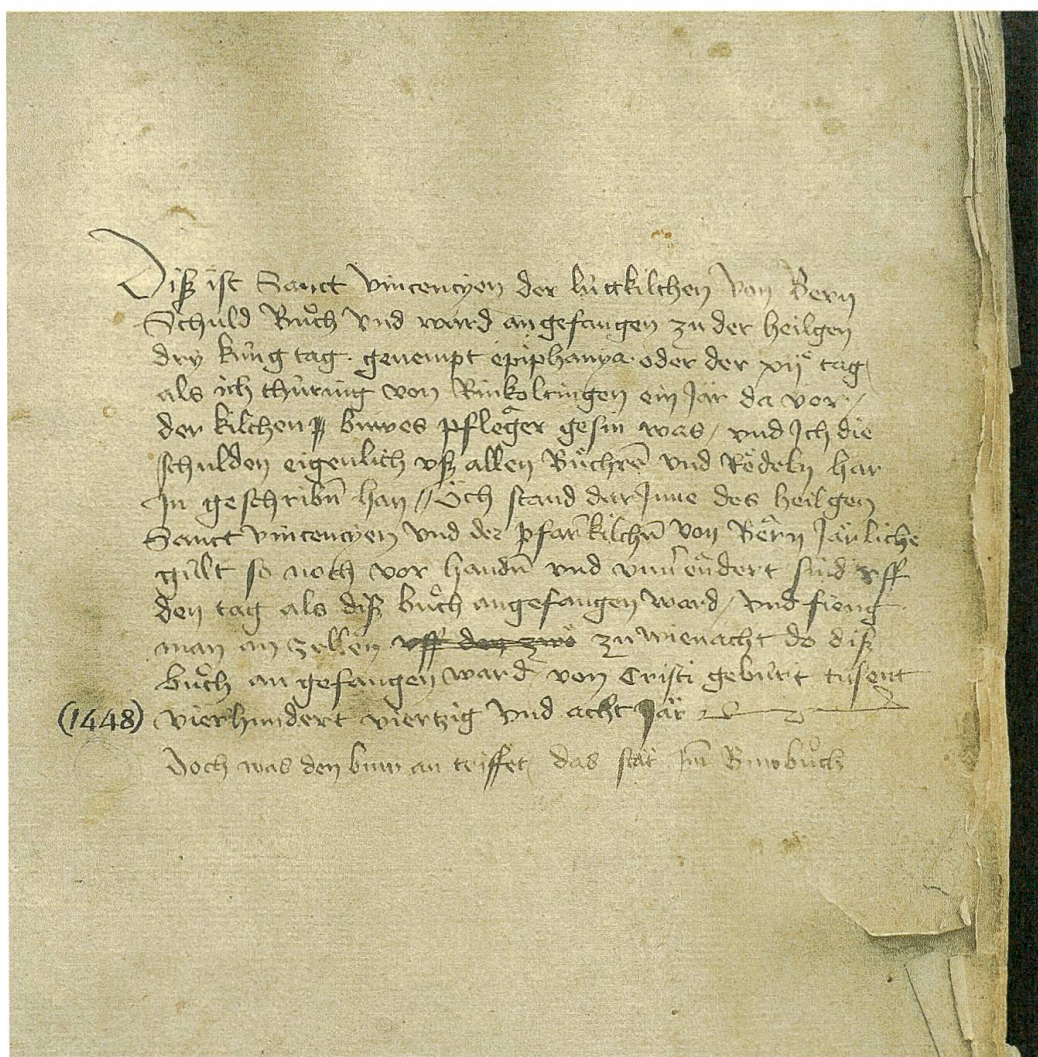 Diß ist Sanct vincencyen der lütkilchen von Bern
Schuld Bůch vnd ward an gefangen zu der heilgen
dry kúng tag genempt epiphanya oder der xij tag
als ich thúring von Rinkoltingen ein Jar da vor /
der kilchen buwes pfleger gesin was / vnd Ich die
schulden eigenlich vß allen Büchren vnd Rödeln har
In geschribn̄ han // Öch stand dar Jnne des heilgen
Sanct vincencyen vnd der pfarkilchn̄ von Bern Järliche
gült so noch vor handn̄ vnd endert sind vff
den tag als diß bůch angefangen ward / vnd fieng
man an zellen vff den zu wienacht do diß
bůch an gefangen ward von Cristi geburt tusent
(1448) vierhundert viertzig vnd acht Jar
Doch was den buw an triffet das stat Im̄ Buwbůch